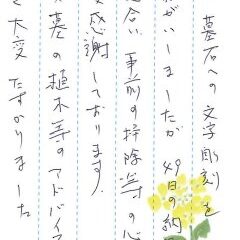 墓石への文字彫刻を
がいしましたが49日の納
合い、事前の掃除等の心
感謝しております。
墓の植木等のアドバイ
大変たすかりました